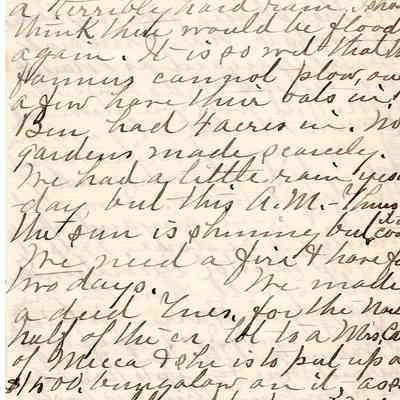 a terribly hard rain. I sho
think there would be flood
again. It is so wet that th
farmers cannot plow, on
a few have their oats in.
Ben had 4 acres in. No
gardens made scarcely.
We had a little rain yes
day but this A.M. - Thurs
the sun is shining but coo
We need a fire & have fo
two days. We made
a deed Tues. for the Nor
half of the cr lot to a Mrs. Ca
of Mecca & she is to put up a
$1500. bungalow on it, as s